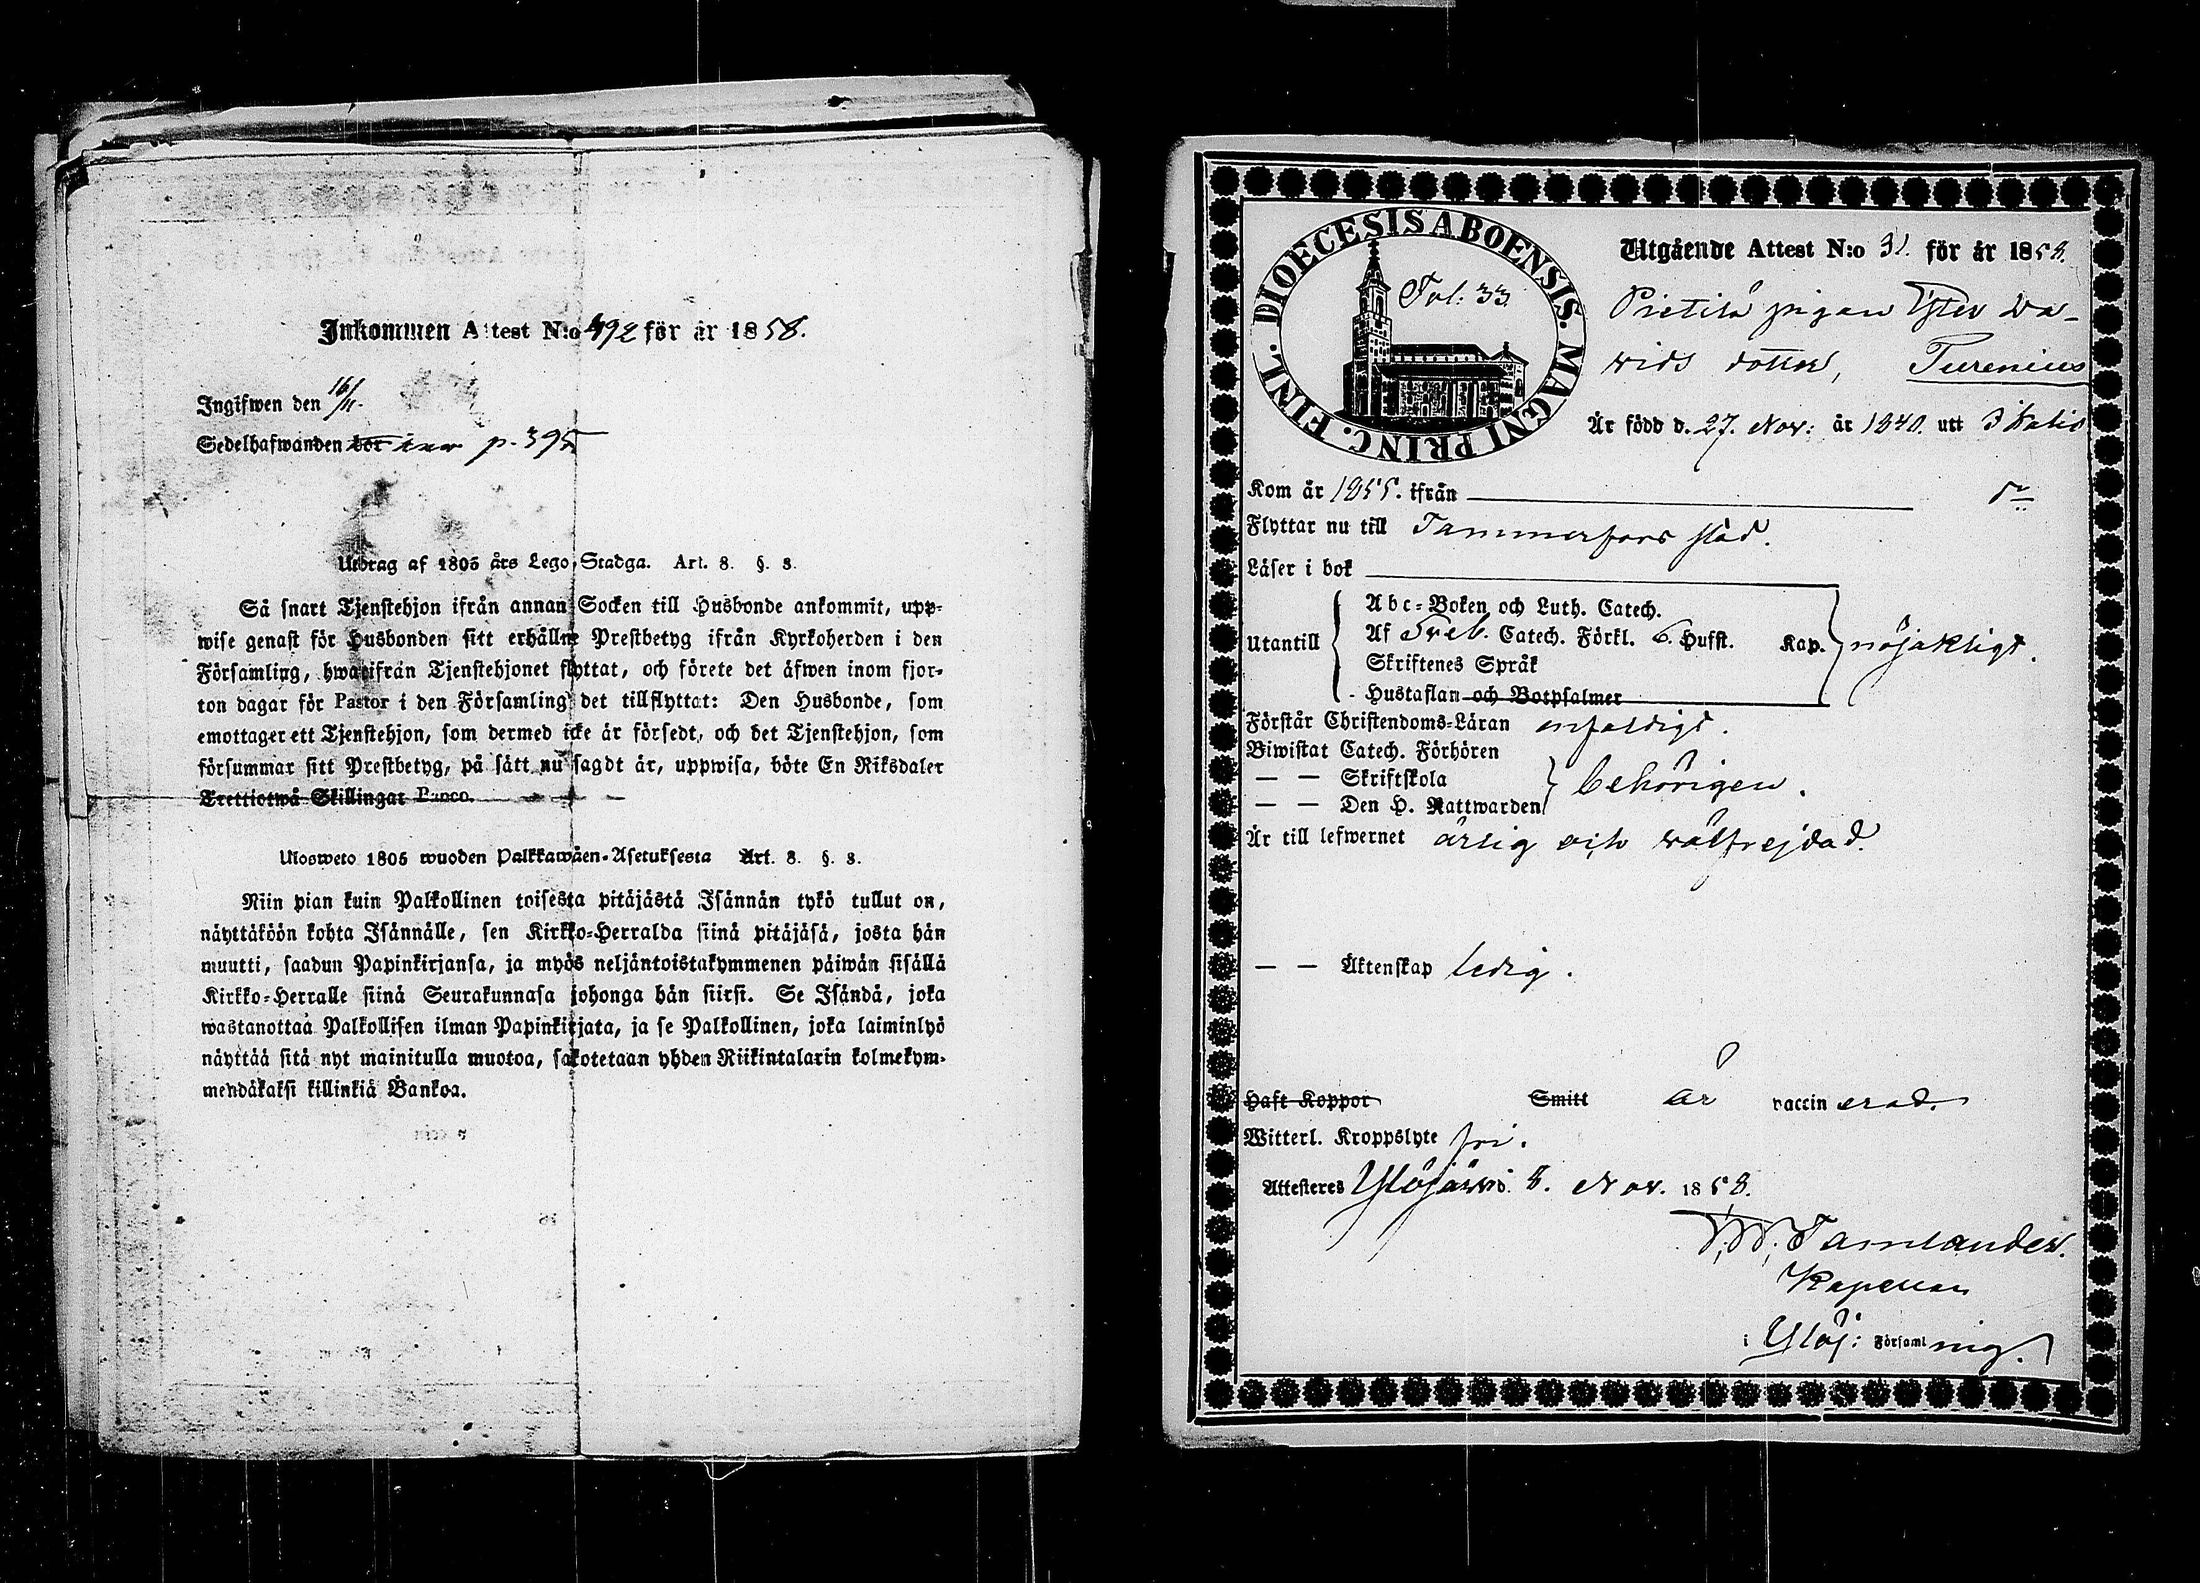 Inkommen Attest N:o 492 för år 1858.
Ingifwen den 16/11.
Sedelhafwanden bor p. 395
Utdrag af 1805 års Lego-Stadga. Art. 8. §. 8.
Så snart Tjenstehjon ifrån annan Socken till Husbonde ankommit, upp-
wise genast för Husbonden sitt erhållne Prestbetyg ifrån Kyrkoherden i den
Församling, hwarifrån Tjenstehjonet flyttat, och förete det äfwen inom fjor-
ton dagar för Pastor i den Församling det tillflyttat: Den Husbonde, som
emottager ett Tjenstehjon, som dermed icke är försedt, och det Tjenstehjon, som
försummar sitt Prestbetyg, på sätt nu sagdt är, uppwisa, böte En Riksdaler
Trettiotwå Skillingar Banco.
Ulosweto 1805 wuoden Palkkawäen-Asetuksesta Art. 8. §. 8.
Niin pian kuin Palkollinen toisesta pitäjästä Isännän tykö tullut on,
näyttäköön kohta Isännälle, sen Kirkko-Herralda siinä pitäjäsä, josta hän
muutti, saadun Papinkirjansa, ja myös neljäntoistakymmenen päiwän sisällä
Kirkko-Herralle siinä Seurakunnasa johonga hän siirsi. Se Isändä, joka
wastanottaa Palkollisen ilman Papinkirjata, ja se Palkollinen, joka laiminlyö
näyttää sitä nyt mainitulla muotoa, sakotetaan yhden Riikintalarin kolmekym-
mendäkaksi killinkiä Bankoa.
DIOECESIS ABOENSIS. MAGNI PRINC. FINL.
Fol: 33
Utgående Attest N:o 31. för år 1858.
Pietilä pigan Ester Da-
wids dotter, Turenius
Är född d. 27. Nov: år 1840. utt Ikalis
Kom år 1855. ifrån dr
Flyttar nu till Tammerfors stad.
Läser i bok
Utantill Abc-Boken och Luth. Catech.
Af Sveb. Catech. Förkl. 6. Hufst. Kap. nöjaktigt.
Skriftenes Språk
Hustaflan och Botpsalmer
Förstår Christendoms-Läran enfaldigt.
Biwistat Catech. Förhören
— — Skriftskola behörigen.
— — Den H. Nattwarden
Är till lefwernet ärlig och wälfrejdad.
— — Äktenskap ledig.
Haft Koppor Smitt är vaccinerad.
Witterl. Kroppslyte fri.
Attesteres Ylöjärwi d. 8. Nov. 1858.
Tamlander.
Kapellan
i Ylöj: Församlning.